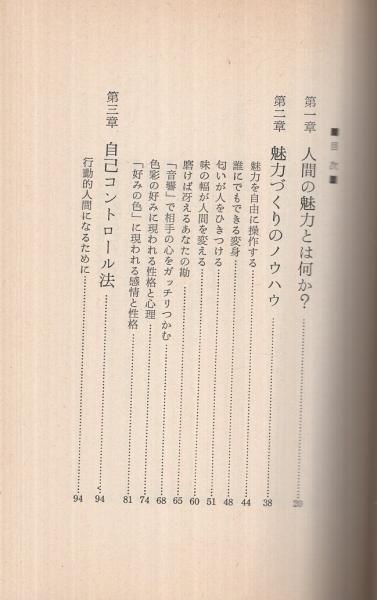 ■目次■
第一章 人間の魅力とは何か?……20
第二章 魅力づくりのノウハウ……38
魅力を自由に操作する……44
誰にでもできる変身……48
匂いが人をひきつける……51
味の幅が人間を変える……60
磨けば冴えるあなたの勘……65
「音響」で相手の心をガッチリつかむ……68
色彩の好みに現われる性格と心理……74
「好みの色」に現われる感情と性格……81
第三章 自己コントロール法……94
行動的人間になるために……94